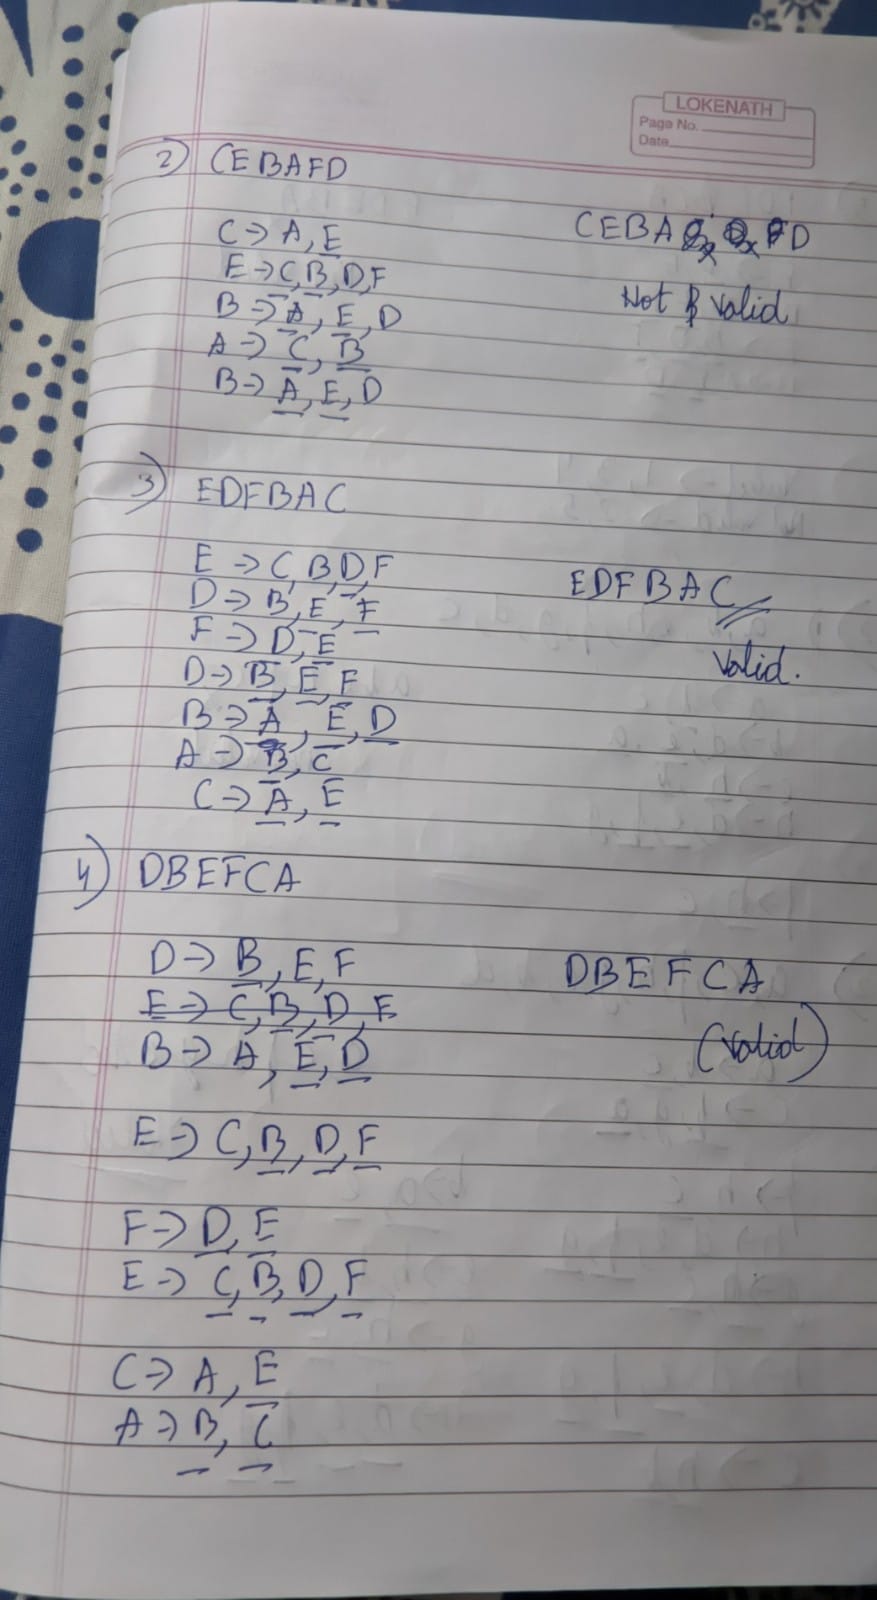 LOKENATH
Page No.
Date
2) CEBAFD
C → A, E
E → C, B, D, F
B → A, E, D
A → C, B
B → A, E, D
CEBA FD
Not valid
3) EDFBAC
E → C, B, D, F
D → B, E, F
F → D, E
D → B, E, F
B → A, E, D
A → B, C
C → A, E
EDFBAC
Valid.
4) DBEFCA
D → B, E, F
E → C, B, D, F
B → A, E, D
E → C, B, D, F
F → D, E
E → C, B, D, F
C → A, E
A → B, C
DBEFCA
(Valid)